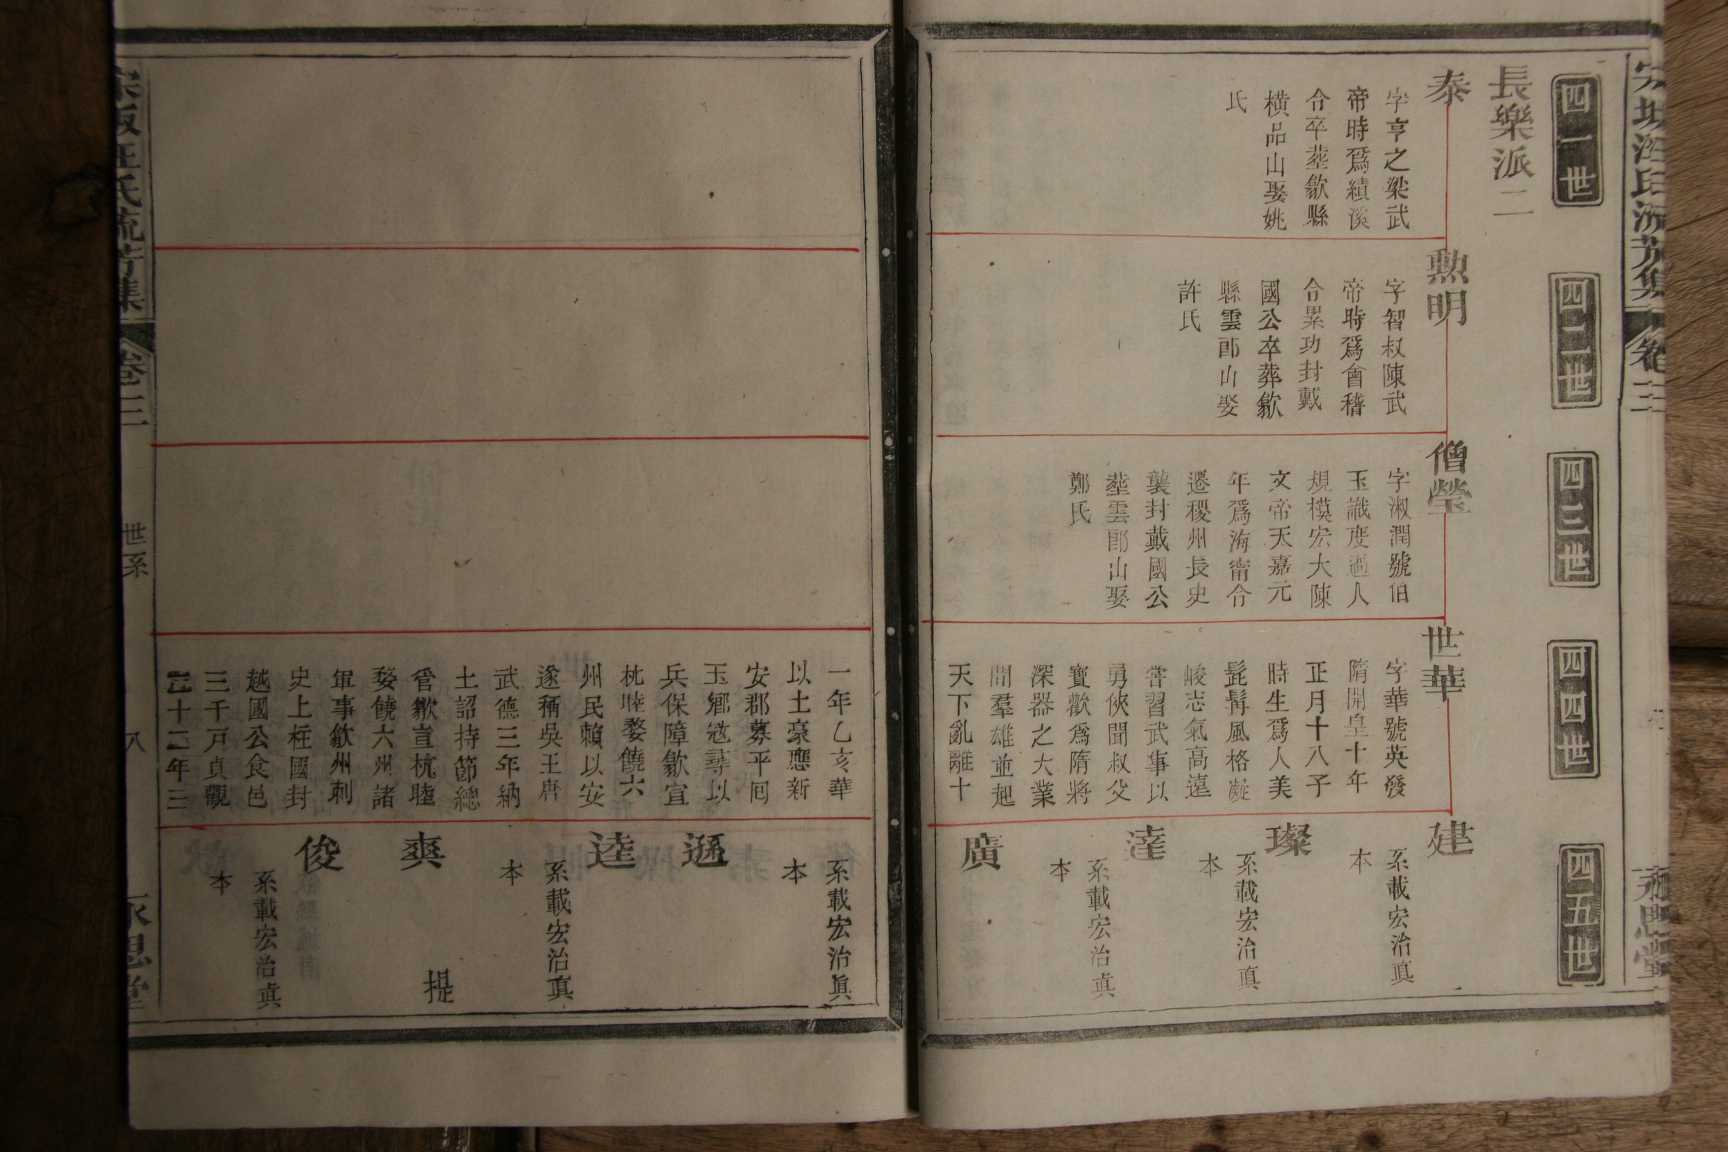 四一世
四二世
四三世
四四世
四五世
長樂派二
泰
字亨之梁武
帝時爲績溪
令卒塟歙縣
橫品山娶姚
氏
勲明
字智叔陳武
帝時爲會稽
令累功封戴
國公卒葬歙
縣雲郎山娶
許氏
僧瑩
字淑潤號伯
玉識度過人
規模宏大陳
文帝天嘉元
年爲海甯令
遷稷州長史
襲封戴國公
塟雲郎山娶
鄭氏
世華
字華號英發
隋開皇十年
正月十八子
時生爲人美
髭髯風格凝
峻志氣高遠
嘗習武事以
勇俠聞叔父
寶歡爲隋將
深器之大業
間羣雄並起
天下亂離十
建
系載宏治真
本
璨
系載宏治真
本
達
系載宏治真
本
廣
一年乙亥華
以土豪應新
安郡募平囘
玉鄉冦尋以
兵保障歙宣
杭睦婺饒六
州民賴以安
遂稱吳王唐
武德三年納
土詔持節總
管歙宣杭睦
婺饒六州諸
軍事歙州刺
史上柱國封
越國公食邑
三千戸貞觀
二十二年三
系載宏治真
本
遜
逵
系載宏治真
本
爽
提
俊
系載宏治真
本
汪氏流芳集
卷三
世系
八
永思堂